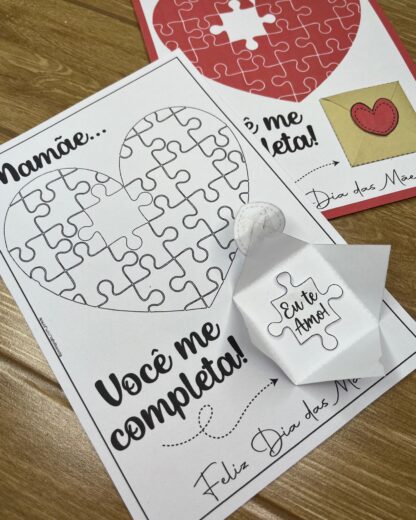 Mamãe...
Você me
completa!
Feliz Dia das Mã
Eu te
Amo!
ê me
leta!
Dia das Mãe